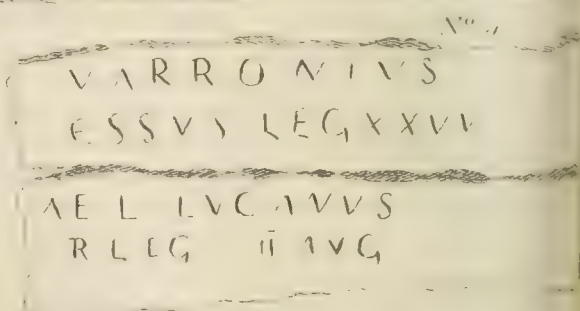 VARRONIVS
ESSVS LEG XXVV
AEL LVCAVVS
R LEG II AVG